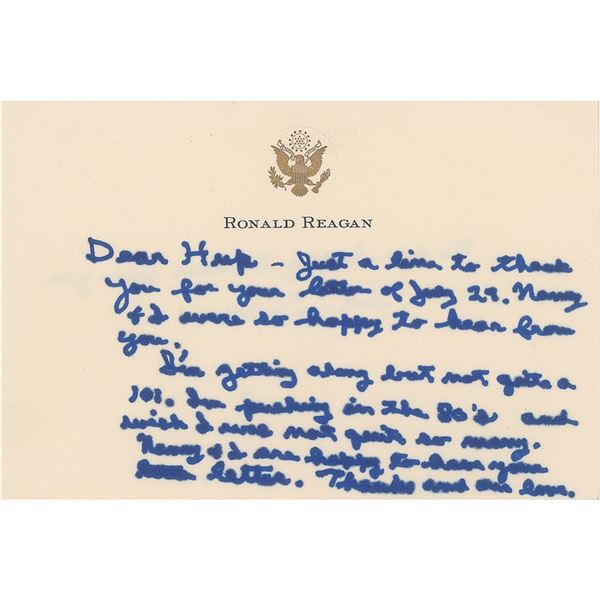 RONALD REAGAN
Dear Hup – Just a line to thank
you for your letter of July 29. Nancy
& I were so happy to hear from
you.
I'm getting along but not quite a
101. I'm pushing in the 80's and
wish I was not quite so many.
Nancy & I are happy to have your
letter. Thanks and our love.